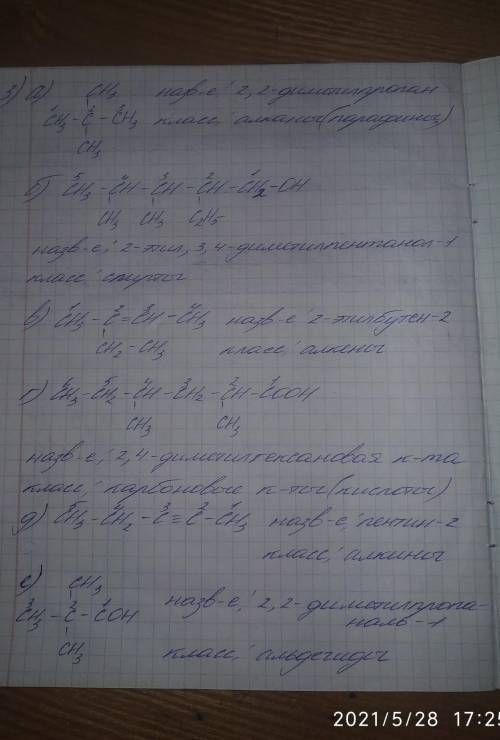 3) а) CH3 назв-е: 2,2-диметилпропан
¹CH3-²C-³CH3 класс: алканы (парафины)
CH3
б) ⁵CH3-⁴CH-³CH-²CH-¹CH2-OH
CH3 CH3 C2H5
назв-е: 2-этил, 3,4-диметилпентанол-1
класс: спирты
в) ¹CH3-²C=³CH-⁴CH3 назв-е: 2-этилбутен-2
CH2-CH3 класс: алкены
г) ⁶CH3-⁵CH2-⁴CH-³CH2-²CH-¹COOH
CH3 CH3
назв-е: 2,4-диметилгексановая к-та
класс: карбоновые к-ты (кислоты)
д) ⁵CH3-⁴CH2-³C≡²C-¹CH3 назв-е: пентин-2
класс: алкины
е) CH3
³CH3-²C-¹COH назв-е: 2,2-диметилпропа-
наль-1
CH3
класс: альдегиды
2021/5/28 17:25